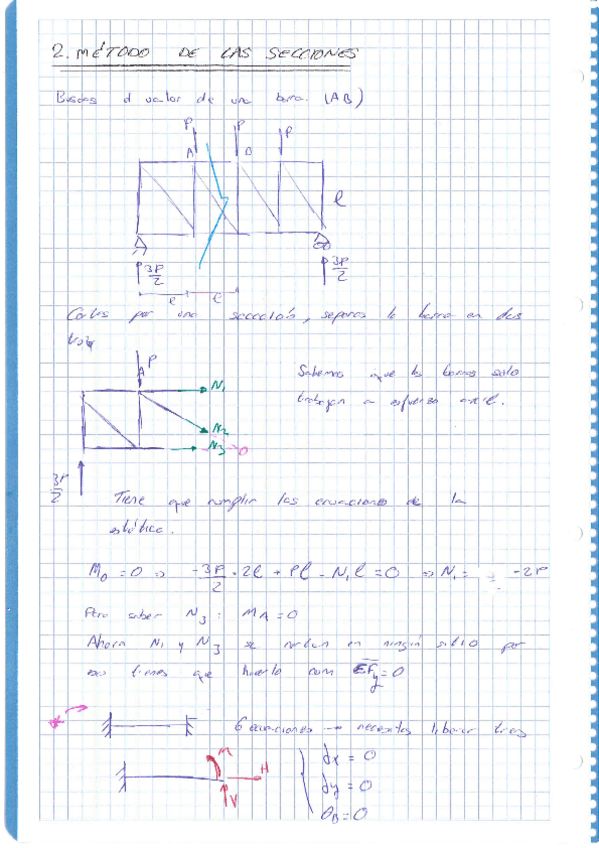 2. MÉTODO DE LAS SECCIONES
Buscas el valor de una barra. (AB)
P P P
A B
l
3P/2 3P/2
l l
Cortas por una sección, separas la barra en dos
P
A N₁
N₂
N₃ O
3P/2
Sabemos que las barras solo
trabajan a esfuerzo axil.
Tiene que cumplir las ecuaciones de la
estática.
M₀ = 0 ⇒ -3P/2 · 2l + Pl - N₁l = 0 ⇒ N₁ = -2P
Para saber N₃ : M_A = 0
Ahora N₁ y N₃ se cortan en ningún sitio por
eso tienes que hacerlo con ΣF_y = 0
6 ecuaciones → necesitas liberar tres
M
H
V
δx = 0
δy = 0
θ_B = 0